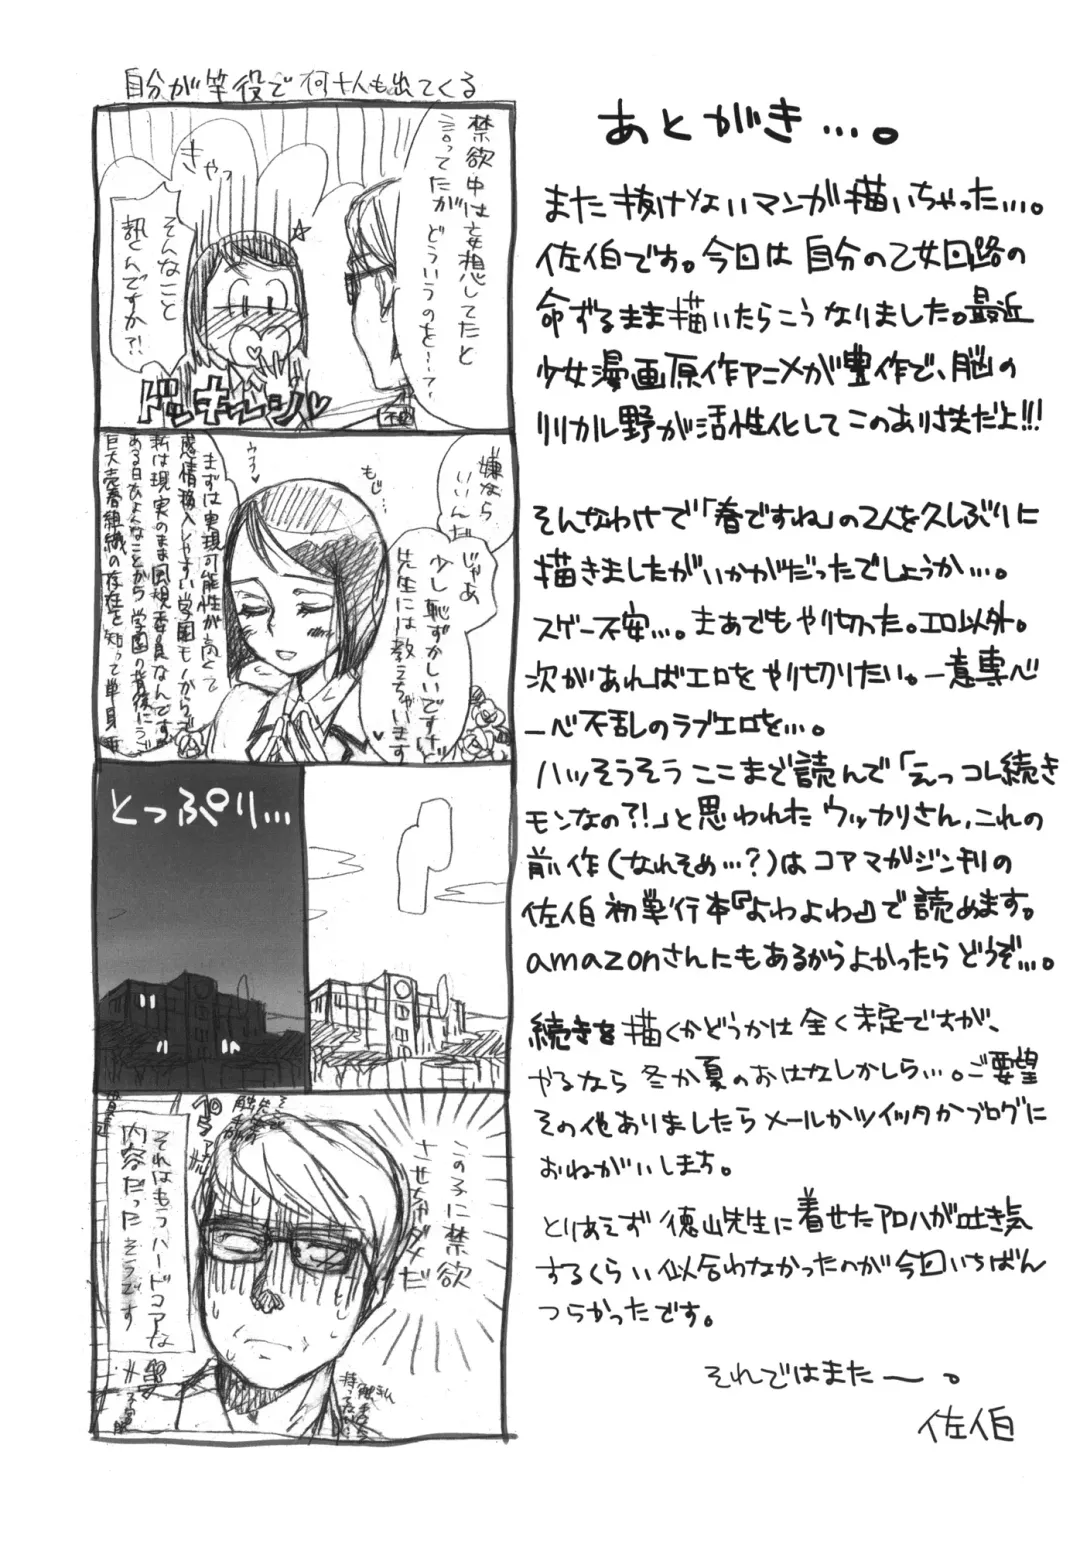 自分が竿役で何十人も出てくる
禁欲中は妄想してたと
言ってたが
どういうのを…？
きゃっ
そんなこと
訊くんですか?!
ドッキーン
嫌なら
いいんだ
もじ…
じゃあ
少し恥ずかしいですけど
先生には教えちゃいます
まずは実現可能性が高くて
感情移入しやすい学園モノからで
私は現実のまま風紀委員なんですが
ある日ひょんなことから学園の背後にうごめく
巨大売春組織の存在を知って単身
とっぷり…
この子に禁欲
させちゃダメだ
それはもうハードコアな
内容だったそうです
あとがき…。
また抜けないマンガ描いちゃった…。
佐伯です。今回は自分の乙女回路の
命ずるまま描いたらこうなりました。最近
少女漫画原作アニメが豊作で、脳の
リリカル野が活性化してこのあり様だよ!!!
そんなわけで「春ですね」の2人を久しぶりに
描きましたがいかがだったでしょうか…。
スゲー不安…。まあでもやり切った。エロ以外。
次があればエロをやり切りたい。一意専心
一心不乱のラブエロを…。
ハッそうそうここまで読んで「えっコレ続き
モンなの?!」と思われたウッカリさん、これの
前作(なれそめ…?)はコアマガジン刊の
佐伯初単行本『よわよわ』で読めます。
amazonさんにもあるからよかったらどうぞ…。
続きを描くかどうかは全く未定ですが、
やるなら冬か夏のおはなしかしら…。ご要望
その他ありましたらメールかツイッタかブログに
おねがいします。
とりあえず徳山先生に着せたアロハが吐き気
するくらい似合わなかったのが今回いちばん
つらかったです。
それではまたー。
佐伯